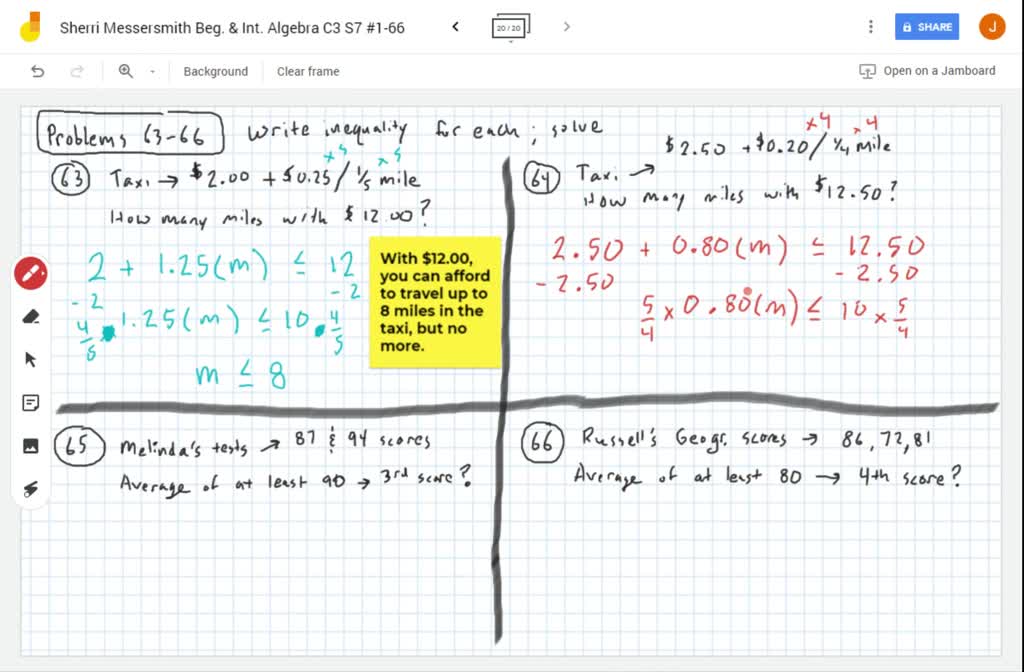 Sherri Messersmith Beg. & Int. Algebra C3 S7 #1-66
20 / 20
SHARE
J
Background
Clear frame
Open on a Jamboard
Problems 63-66
Write inequality for each; solve
63
x5 x5
Taxi → $2.00 + $0.25 / 1/5 mile
How many miles with $12.00?
2 + 1.25(m) ≤ 12
-2 -2
4/5 • 1.25(m) ≤ 10 • 4/5
m ≤ 8
With $12.00,
you can afford
to travel up to
8 miles in the
taxi, but no
more.
64
x4 x4
Taxi → $2.50 + $0.20 / 1/4 mile
How many miles with $12.50?
2.50 + 0.80(m) ≤ 12.50
-2.50 -2.50
5/4 x 0.80(m) ≤ 10 x 5/4
65
Melinda's tests → 87 & 94 scores
Average of at least 90 → 3rd score?
66
Russell's Geogr. scores → 86, 72, 81
Average of at least 80 → 4th score?